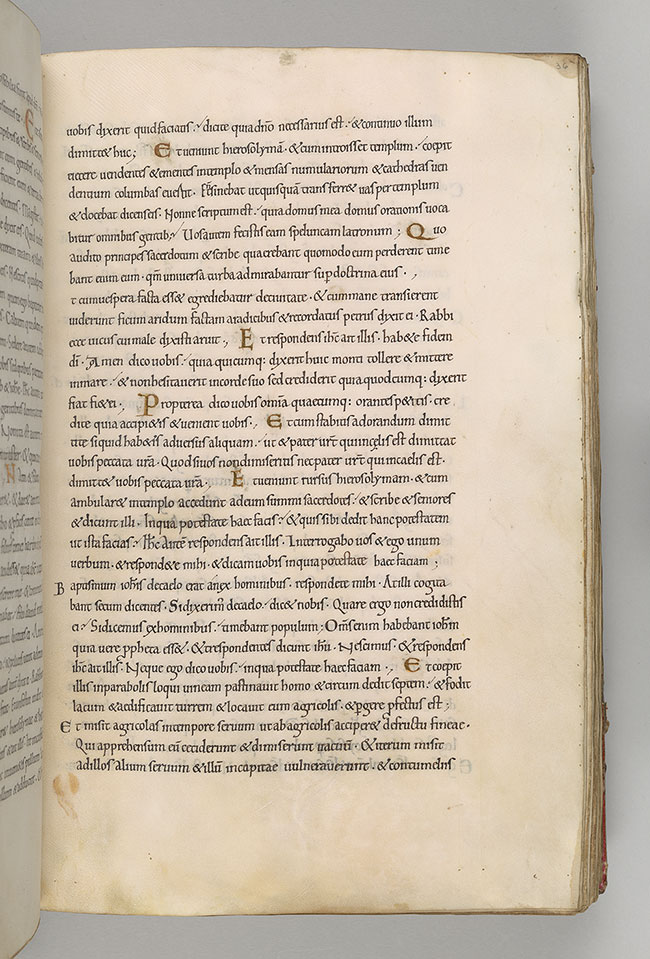 36
uobis dixerit quid facitis· dicite quia dño necessarius est· & continuo illum
dimittet huc; Et ueniunt hierosolymã· & cum introisset templum· coepit
eicere uendentes & ementes in templo & mensas numulariorum & cathedras uen
dentium columbas euertit· Et ñ sinebat ut quisquã transferret uas per templum
& docebat dicens eis· Nonne scriptum est· quia domus mea domus orationis uoca
bitur omnibus gentib; Uos autem fecistis eam speluncam latronum; Quo
audito principes sacerdotum & scribe quaerebant quomodo eum perderent time
bant enim eum· qm̃ uniuersa turba admirabantur sup doctrina eius·,
t cum uespera facta esset egrediebatur de ciuitate· & cum mane transierent
uiderunt ficum aridam factam a radicibus & recordatus petrus dixit ei· Rabbi
ecce ficus cui maledixisti aruit·, Et respondens ihc ait illis· habete fidem
di· Amen dico uobis· quia quicumq; dixerit huic monti tollere & mittere
in mare· & non hesitauerit in corde suo sed crediderit quia quodcumq; dixerit
fiat fiet ei; Propterea dico uobis omnia quaecumq; orantes petitis· cre
dite quia accipietis & uenient uobis·, Et cum stabitis ad orandum dimit
tite siquid habetis aduersus aliquam· ut & pater ur̃ qui in celis est dimittat
uobis peccata ur̃a· Quod si uos non dimiseritis nec pater ur̃ qui in caelis est·
dimittet uobis peccata ur̃a· Et ueniunt rursus hierosolymam· & cum
ambularet in templo accedunt ad eum summi sacerdotes· & scribe & seniores
& dicunt illi· In qua potestate haec facis· & quis tibi dedit hanc potestatem
ut ista facias· Ihc autẽ respondens ait illis· Interrogabo uos & ego unum
uerbum· & respondete mihi· & dicam uobis in qua potestate haec faciam;
Baptismum iohis de caelo erat an ex hominibus· respondete mihi· At illi cogita
bant secum dicentes· Si dixerim̃ de caelo· dicet nobis· Quare ergo non credidistis
ei· Si dicemus ex hominibus· timebant populum· Om̃s enim habebant iohm̃
quia uere ppheta esset· & respondentes dicunt ihũ· Nescimus· & respondens
ihc ait illis· Neque ego dico uobis· in qua potestate haec faciam·, Et coepit
illis in parabolis loqui uineam pastinauit homo & circumdedit septem· & fodit
lacum & aedificauit turrem & locauit eam agricolis· & pgere pfectus est;
Et misit agricolas in tempore seruum ut ab agricolis acciperet de fructu fineae·
Qui apprehensum eũ ceciderunt & dimiserunt uacuũ· & iterum misit
ad illos alium seruum & illũ in capitae uulnerauerunt· & contumeliis